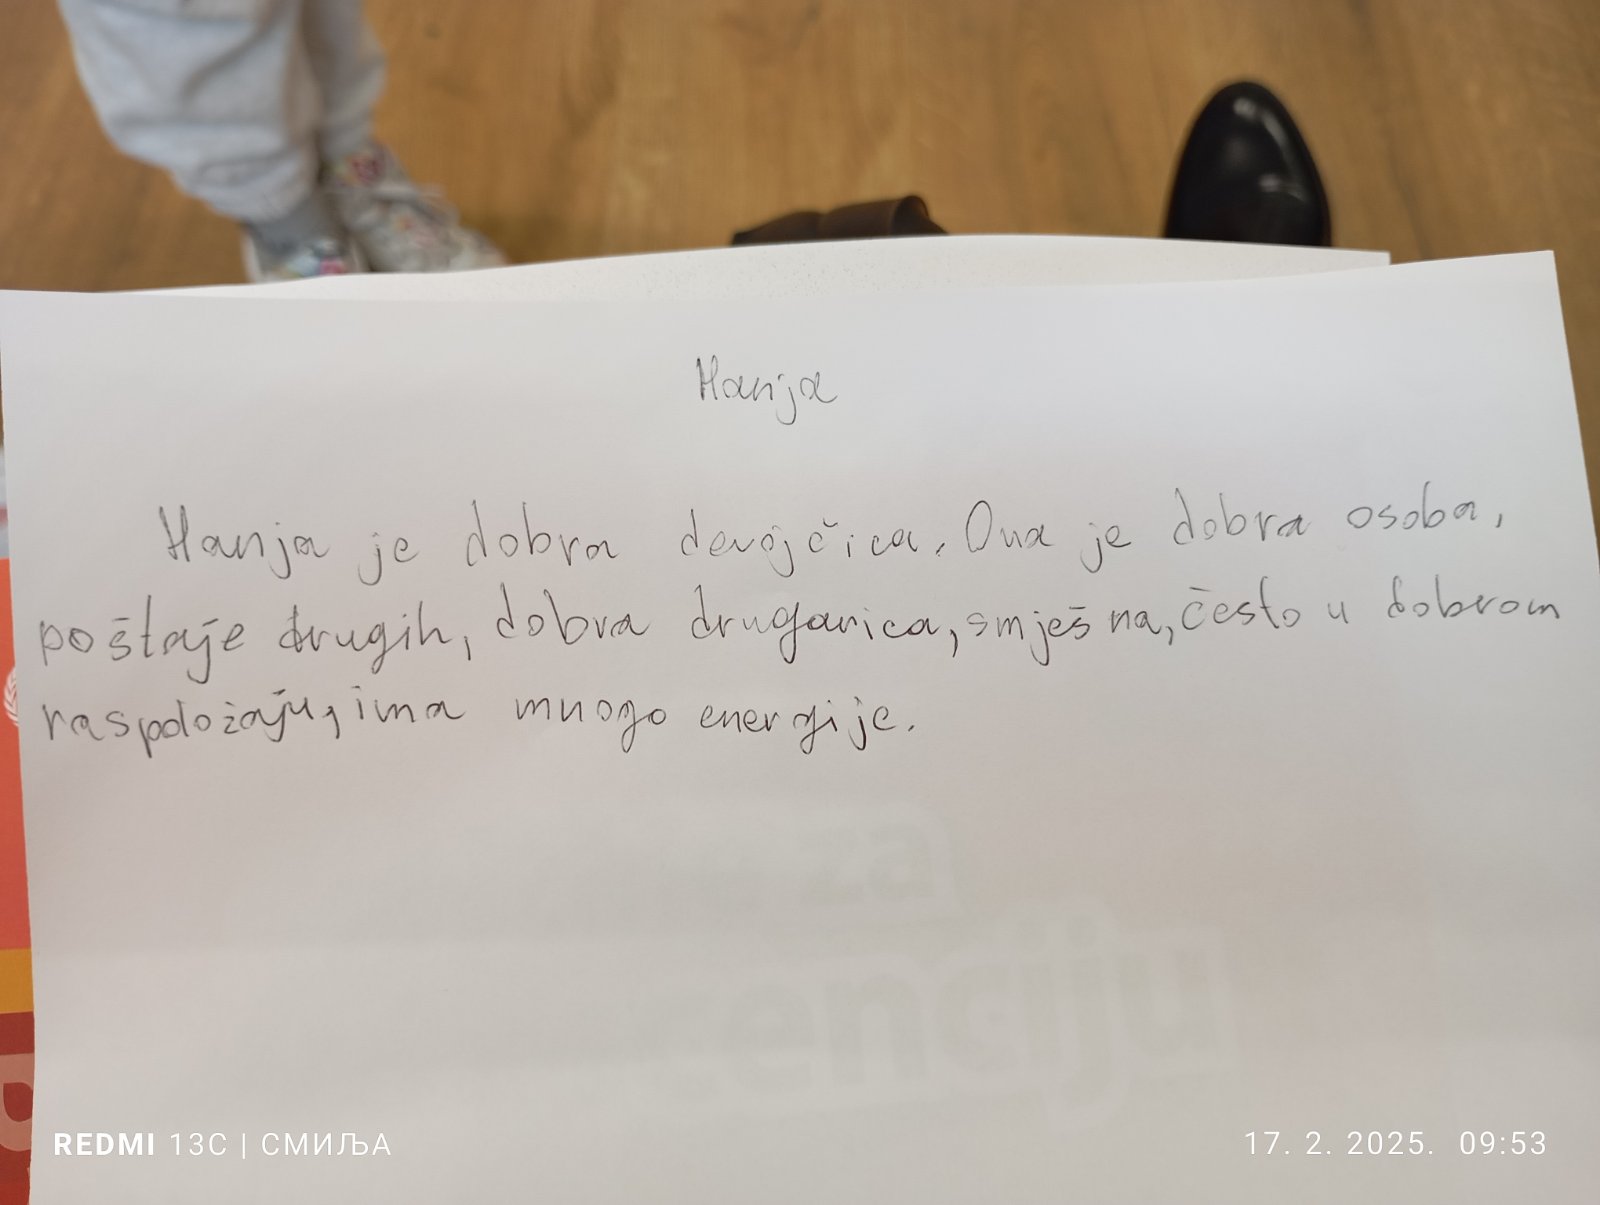 Hanja
Hanja je dobra devojčica. Ona je dobra osoba,
poštaje drugih, dobra drugarica, smješna, često u dobrom
raspoložaju, ima mnogo energije.
za
enciju
REDMI 13C | СМИЉА
17. 2. 2025. 09:53